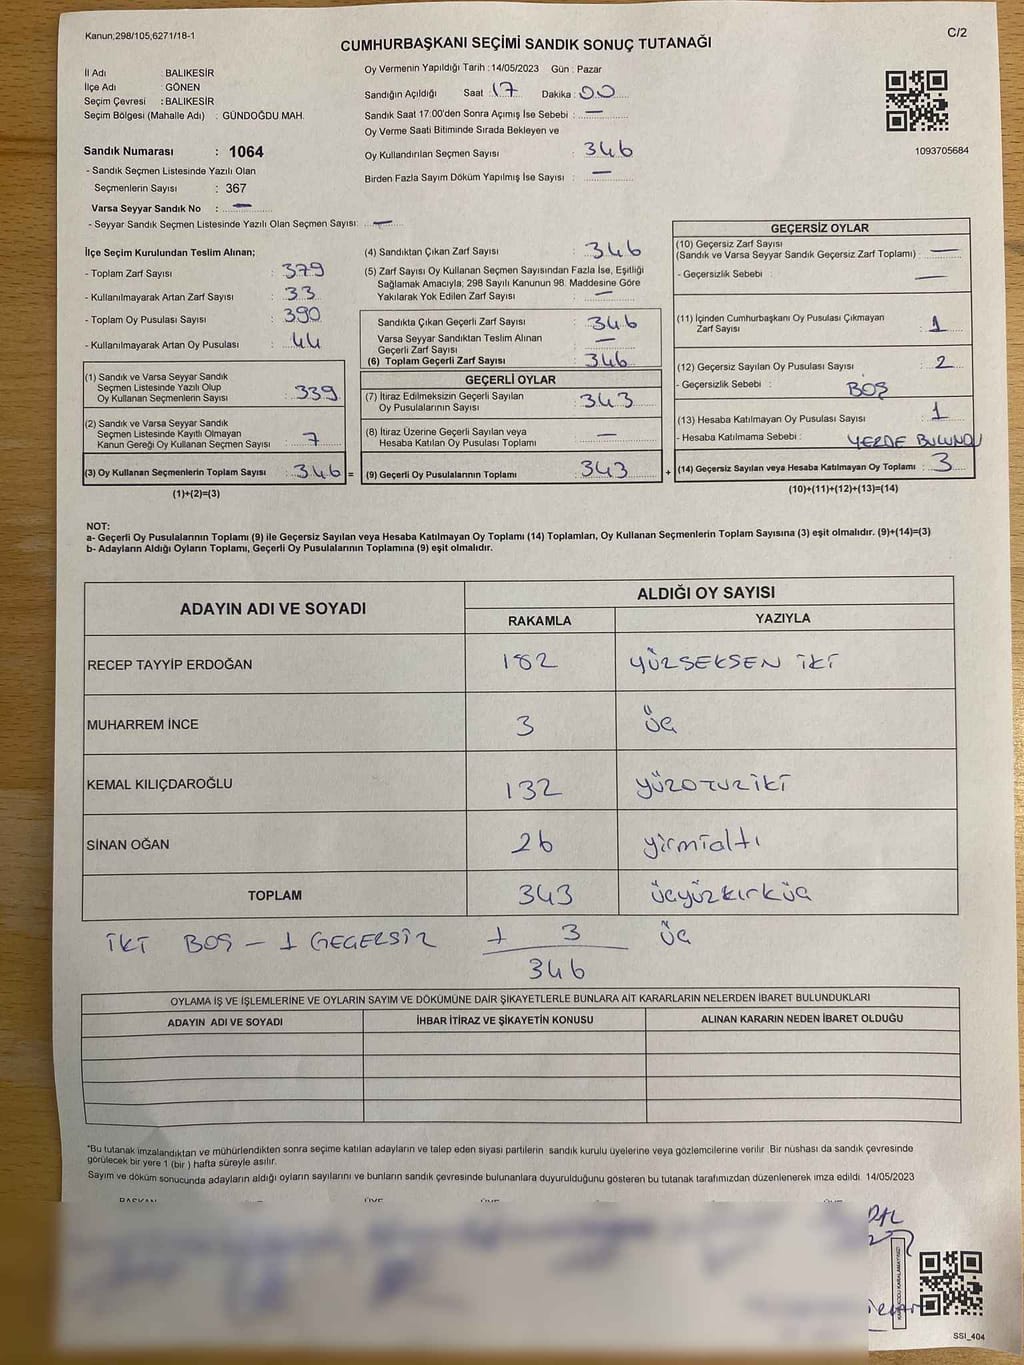 Kanun;298/105,6271/18-1
C/2
CUMHURBAŞKANI SEÇİMİ SANDIK SONUÇ TUTANAĞI
İl Adı : BALIKESİR
İlçe Adı : GÖNEN
Seçim Çevresi : BALIKESİR
Seçim Bölgesi (Mahalle Adı) : GÜNDOĞDU MAH.
Sandık Numarası : 1064
- Sandık Seçmen Listesinde Yazılı Olan
Seçmenlerin Sayısı : 367
Varsa Seyyar Sandık No : —
- Seyyar Sandık Seçmen Listesinde Yazılı Olan Seçmen Sayısı: —
Oy Vermenin Yapıldığı Tarih :14/05/2023 Gün : Pazar
Sandığın Açıldığı Saat : 17 Dakika : 00
Sandık Saat 17:00'den Sonra Açımış İse Sebebi : —
Oy Verme Saati Bitiminde Sırada Bekleyen ve
Oy Kullandırılan Seçmen Sayısı : 346
Birden Fazla Sayım Döküm Yapılmış İse Sayısı : —
1093705684
İlçe Seçim Kurulundan Teslim Alınan;
- Toplam Zarf Sayısı : 379
- Kullanılmayarak Artan Zarf Sayısı : 33
- Toplam Oy Pusulası Sayısı : 390
- Kullanılmayarak Artan Oy Pusulası : 44
(1) Sandık ve Varsa Seyyar Sandık
Seçmen Listesinde Yazılı Olup
Oy Kullanan Seçmenlerin Sayısı : 339
(2) Sandık ve Varsa Seyyar Sandık
Seçmen Listesinde Kayıtlı Olmayan
Kanun Gereği Oy Kullanan Seçmen Sayısı : 7
(3) Oy Kullanan Seçmenlerin Toplam Sayısı : 346 =
(1)+(2)=(3)
(4) Sandıktan Çıkan Zarf Sayısı : 346
(5) Zarf Sayısı Oy Kullanan Seçmen Sayısından Fazla İse, Eşitliği
Sağlamak Amacıyla; 298 Sayılı Kanunun 98. Maddesine Göre
Yakılarak Yok Edilen Zarf Sayısı : —
Sandıkta Çıkan Geçerli Zarf Sayısı : 346
Varsa Seyyar Sandıktan Teslim Alınan
Geçerli Zarf Sayısı : —
(6) Toplam Geçerli Zarf Sayısı : 346
GEÇERLİ OYLAR
(7) İtiraz Edilmeksizin Geçerli Sayılan
Oy Pusulalarının Sayısı : 343
(8) İtiraz Üzerine Geçerli Sayılan veya
Hesaba Katılan Oy Pusulası Toplamı : —
(9) Geçerli Oy Pusulalarının Toplamı : 343 +
GEÇERSİZ OYLAR
(10) Geçersiz Zarf Sayısı
(Sandık ve Varsa Seyyar Sandık Geçersiz Zarf Toplamı) : —
- Geçersizlik Sebebi : —
(11) İçinden Cumhurbaşkanı Oy Pusulası Çıkmayan
Zarf Sayısı : 1
(12) Geçersiz Sayılan Oy Pusulası Sayısı : 2
- Geçersizlik Sebebi : BOŞ
(13) Hesaba Katılmayan Oy Pusulası Sayısı : 1
- Hesaba Katılmama Sebebi : YERDE BULUNDU
(14) Geçersiz Sayılan veya Hesaba Katılmayan Oy Toplamı : 3
(10)+(11)+(12)+(13)=(14)
NOT:
a- Geçerli Oy Pusulalarının Toplamı (9) ile Geçersiz Sayılan veya Hesaba Katılmayan Oy Toplamı (14) Toplamları, Oy Kullanan Seçmenlerin Toplam Sayısına (3) eşit olmalıdır. (9)+(14)=(3)
b- Adayların Aldığı Oyların Toplamı, Geçerli Oy Pusulalarının Toplamına (9) eşit olmalıdır.
ADAYIN ADI VE SOYADI ALDIĞI OY SAYISI
RAKAMLA YAZIYLA
RECEP TAYYİP ERDOĞAN 182 YÜZSEKSEN İKİ
MUHARREM İNCE 3 üç
KEMAL KILIÇDAROĞLU 132 yüzotuziki
SİNAN OĞAN 26 yirmialtı
TOPLAM 343 üçyüzkırküç
İKİ BOŞ - 1 GEÇERSİZ + 3 üç
346
OYLAMA İŞ VE İŞLEMLERİNE VE OYLARIN SAYIM VE DÖKÜMÜNE DAİR ŞİKAYETLERLE BUNLARA AİT KARARLARIN NELERDEN İBARET BULUNDUKLARI
ADAYIN ADI VE SOYADI İHBAR İTİRAZ VE ŞİKAYETİN KONUSU ALINAN KARARIN NEDEN İBARET OLDUĞU
*Bu tutanak imzalandıktan ve mühürlendikten sonra seçime katılan adayların ve talep eden siyasi partilerin sandık kurulu üyelerine veya gözlemcilerine verilir. Bir nüshası da sandık çevresinde
görülecek bir yere 1 (bir ) hafta süreyle asılır.
Sayım ve döküm sonucunda adayların aldığı oyların sayılarını ve bunların sandık çevresinde bulunanlara duyurulduğunu gösteren bu tutanak tarafımızdan düzenlenerek imza edildi. 14/05/2023
BAŞKAN ÜYE ÜYE
KARE KODU KARALAMAYINIZ!
SSI_404